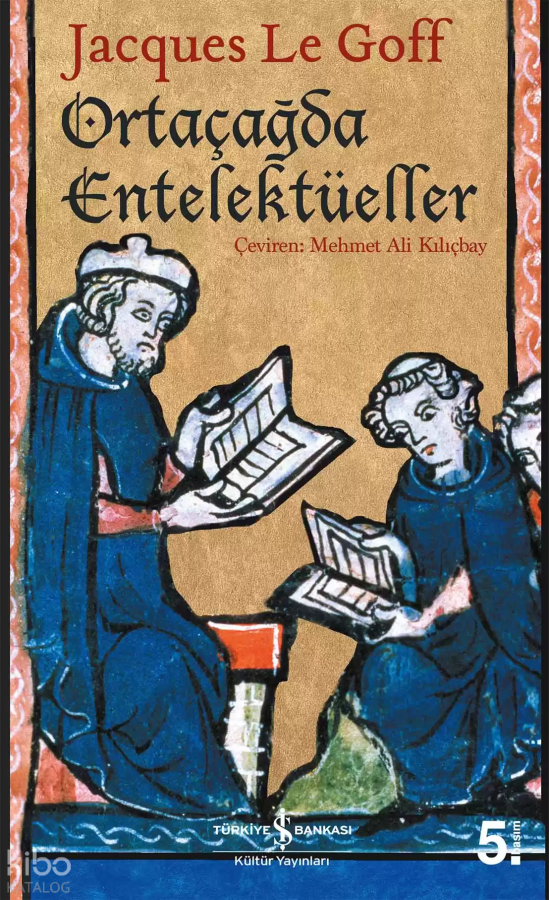 Jacques Le Goff
Ortaçağda
Entelektüeller
Çeviren: Mehmet Ali Kılıçbay
TÜRKİYE İŞ BANKASI
Kültür Yayınları
5. basım
kibo
KATALOG